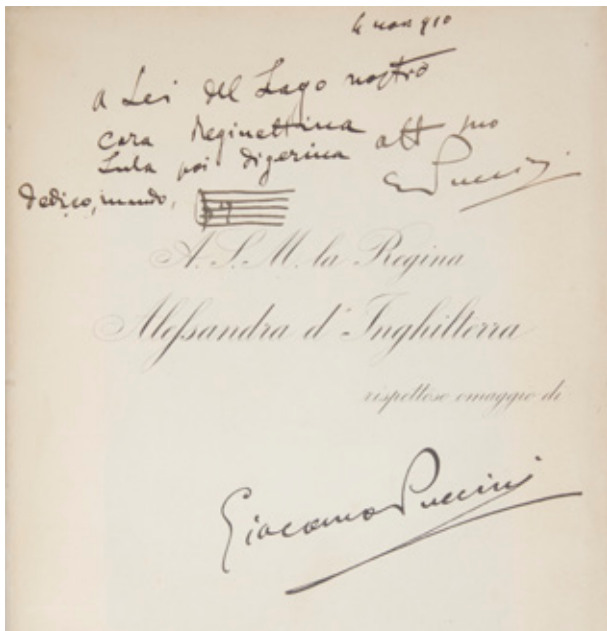 a Lei del Lago nostro
cara Reginettina
Lula poi Digerina
dedico, mando,
G Puccini
A. S. M. la Regina
Alessandra d'Inghilterra
rispettoso omaggio di
Giacomo Puccini